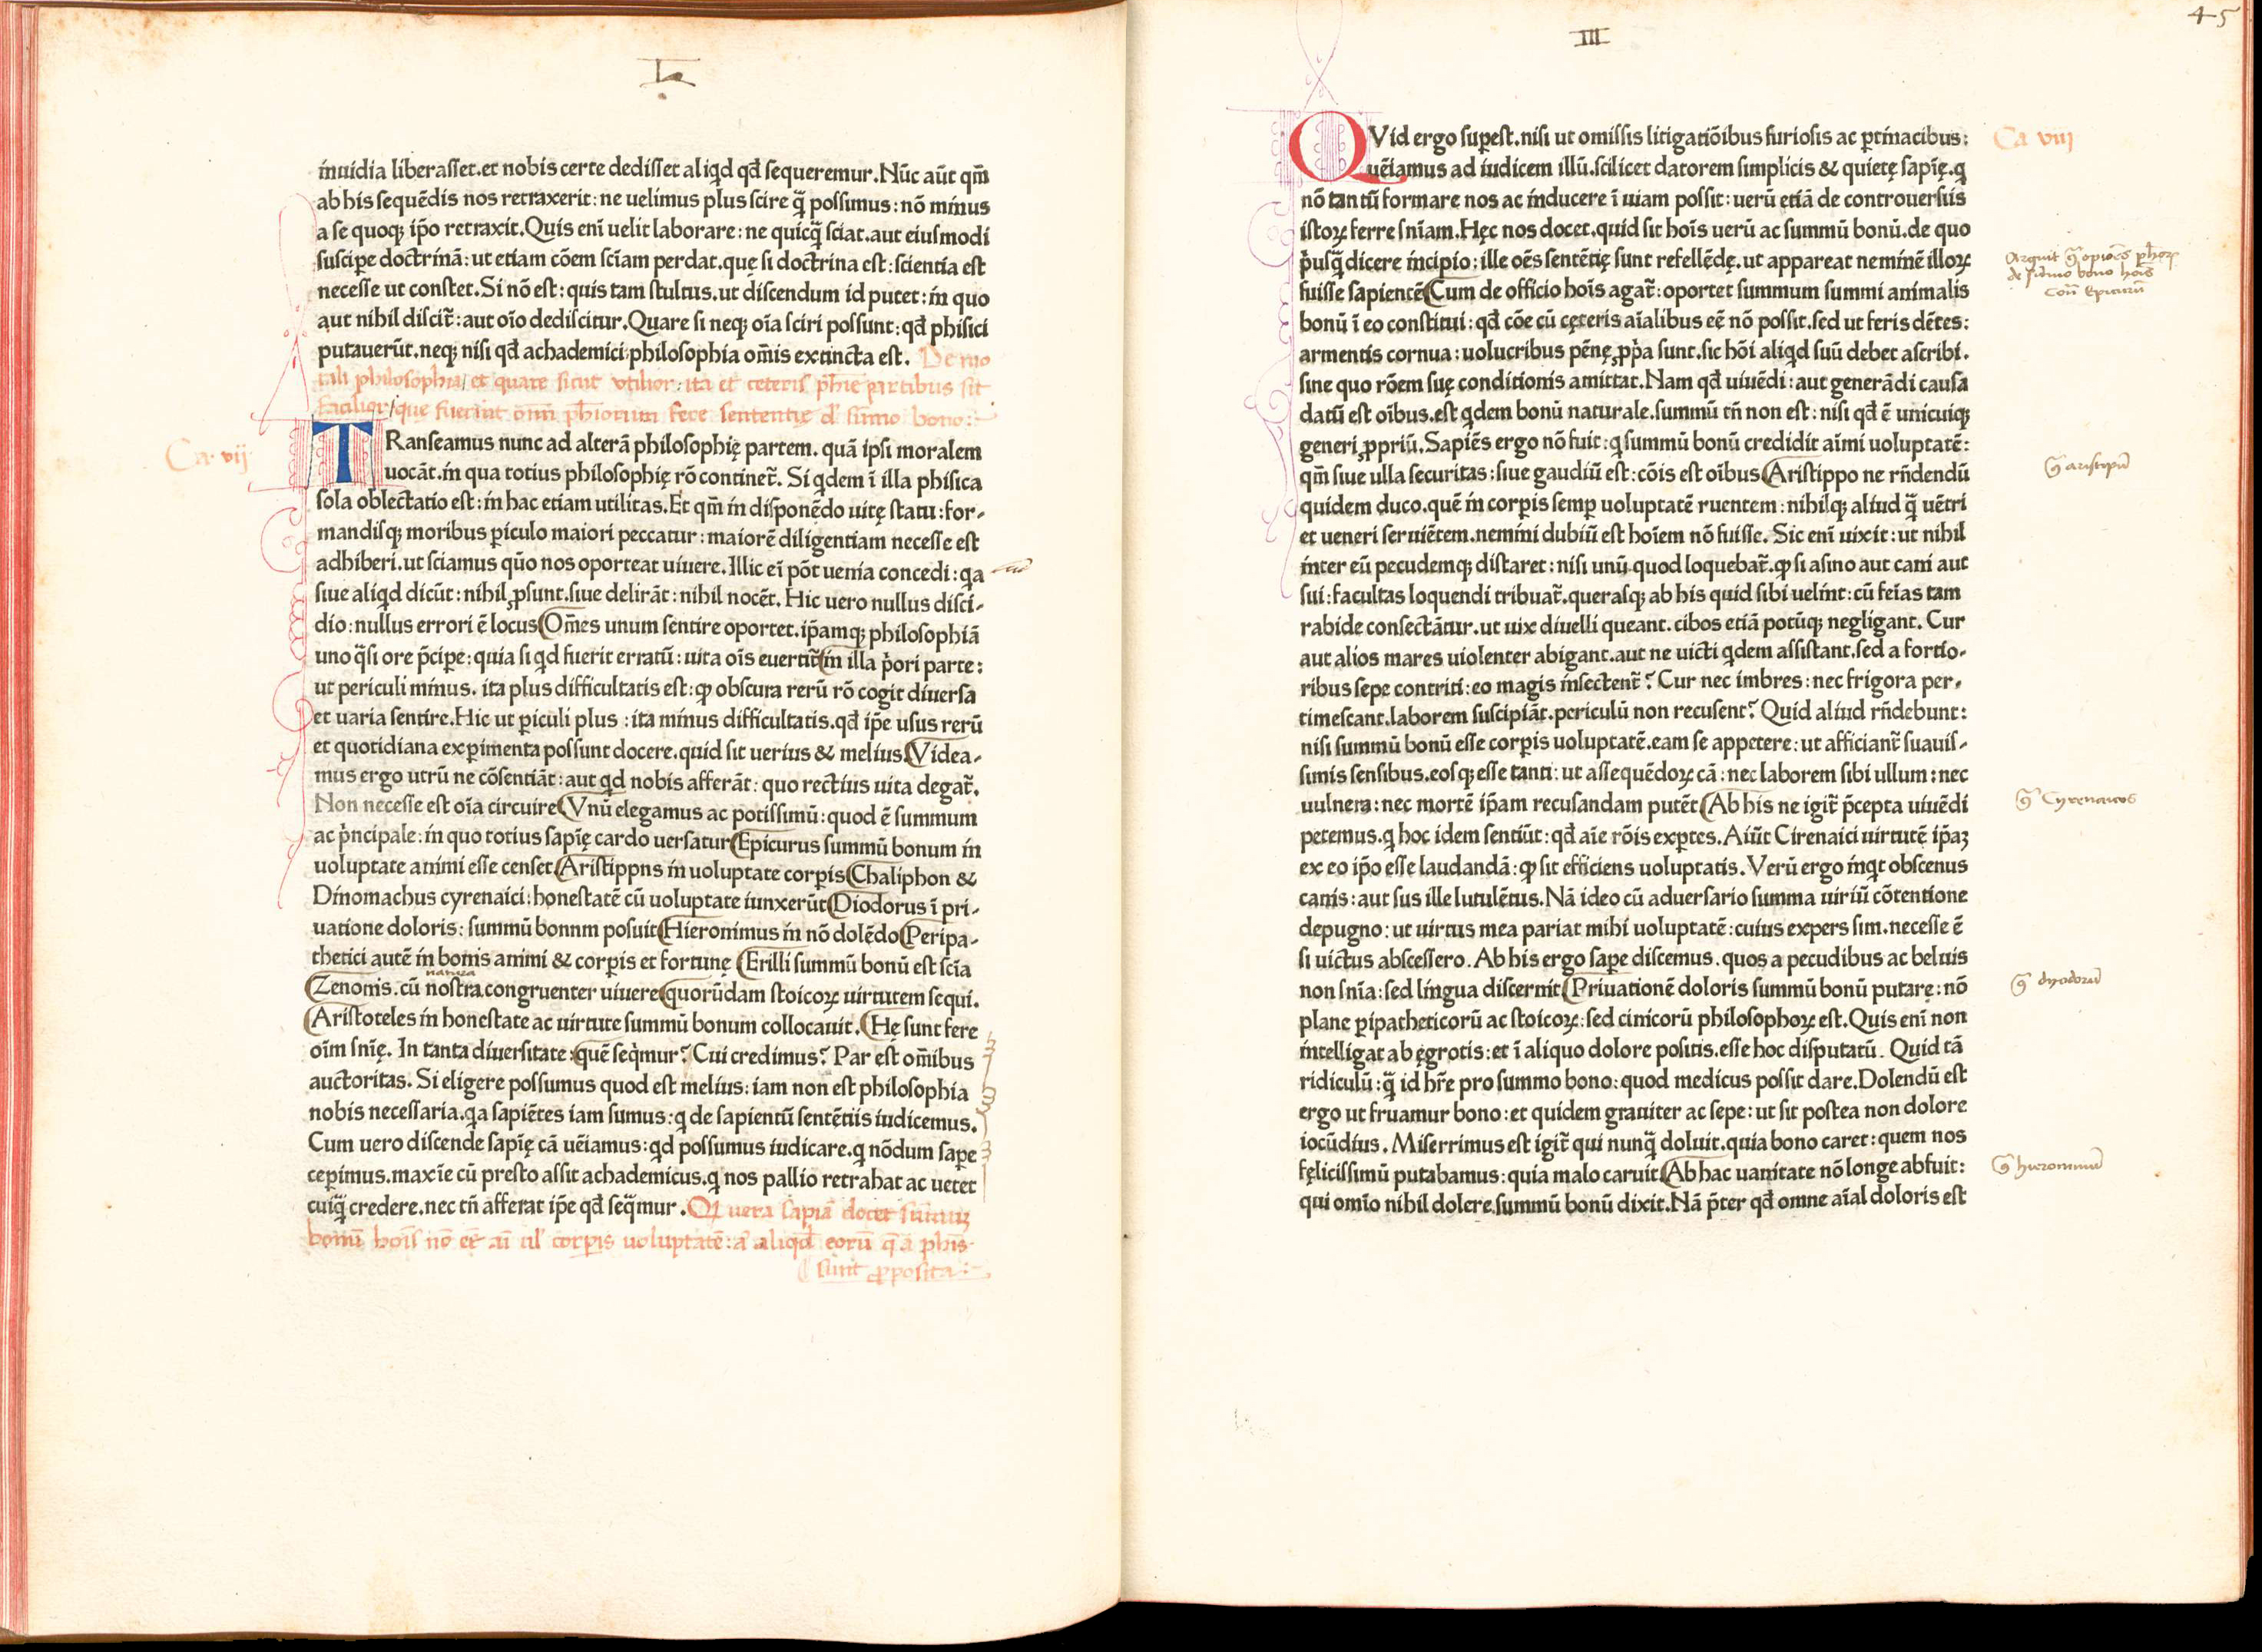 L
inuidia liberaſſet.et nobis certe dediſſet aliqd qđ ſequeremur.Nūc aūt qm̄
ab his ſequēdis nos retraxerit:ne uelimus plus ſcire q̄ poſſumus:nō minus
a ſe quoqꝫ ip̄o retraxit.Quis eni uelit laborare:ne quicq̄ ſciat.aut eiuſmodi
ſuſcipe doctrinā:ut etiam cōem ſciam perdat.quę ſi doctrina eſt:ſcientia eſt
neceſſe ut conſtet.Si nō eſt:quis tam ſtultus.ut diſcendum id putet:in quo
aut nihil diſcit̄:aut oīo dediſcitur.Quare ſi neqꝫ oīa ſciri poſſunt:qđ phiſici
putauerūt.neqꝫ niſi qđ achademici:philoſophia om̄is extincta eſt. De mo
rali philosophia/et quare sicut vtilior:ita et ceteris ph̄ie partibus sit
facilior/que fuerint om̄i ph̄iorum fere sententię d' sūmo bono:-
Ca. vij
TRanſeamus nunc ad alterā philoſophię partem. quā ipſi moralem
uocāt.in qua totius philoſophię rō continet̄. Si qdem ī illa phiſica
ſola oblectatio eſt:in hac etiam utilitas.Et qm̄ in diſponēdo uitę ſtatu:for-
mandiſqꝫ moribus piculo maiori peccatur:maiorē diligentiam neceſſe eſt
adhiberi.ut ſciamus quō nos oporteat uiuere.Illic eī pōt uenia concedi:qa
ſiue aliqd dicūt:nihil ꝓſunt.ſiue delirāt:nihil nocēt.Hic uero nullus diſci-
dio:nullus errori ē locus(Om̄es unum ſentire oportet.ip̄amqꝫ philoſophiā
uno q̄ſi ore p̄cipe:quia ſi qd fuerit erratū:uita oīs euertit̄(in illa p̓ori parte:
ut periculi minus. ita plus difficultatis eſt:ꝙ obſcura rerū rō cogit diuerſa
et uaria ſentire.Hic ut piculi plus:ita minus difficultatis.qđ ip̄e uſus rerū
et quotidiana expimenta poſſunt docere.quid ſit uerius & melius.(Videa-
mus ergo utrū ne cōſentiāt:aut qd nobis afferāt:quo rectius uita degat̄.
Non neceſſe eſt oīa circuire(Vnū elegamus ac potiſſimū:quod ē ſummum
ac p̓ncipale:in quo totius ſapīę cardo uerſatur(Epicurus ſummū bonum in
uoluptate animi eſſe cenſet(Ariſtippns in uoluptate corpis(Chaliphon &
Dinomachus cyrenaici:honeſtatē cū uoluptate iunxerūt(Diodorus ī pri-
uatione doloris:ſummū bonnm poſuit(Hieronimus in nō dolēdo(Peripa-
thetici autē in bonis animi & corpis et fortunę (Erilli ſummū bonū eſt ſcīa
natura
(Zenonis.cū noſtra congruenter uiuere(quorūdam ſtoicoꝝ uirtutem ſequi.
(Ariſtoteles in honeſtate ac uirtute ſummū bonum collocauit.(Hę ſunt fere
oīm ſnīę. In tanta diuerſitate:quē ſeq̓mur? Cui credimus? Par eſt om̄ibus
auctoritas. Si eligere poſſumus quod eſt melius:iam non eſt philoſophia
nobis neceſſaria.qa ſapiētes iam ſumus:q de ſapientū ſentētiis iudicemus.
Cum uero diſcende ſapīę cā uēiamus:qd poſſumus iudicare.q nōdum ſape
cepimus.maxīe cū preſto aſſit achademicus.q nos pallio retrahat ac uetet
cuiq̄ credere.nec tn̄ afferat ip̄e qđ ſeq̄mur. Qꝫ uera sapiā docet sūmuꝫ
bonū hoīs nō eē aī ul' corpis uoluptatē:a' aliqđ eorū q̄ a phīs
sunt ꝓposita:-
III
45
QVid ergo ſupeſt.niſi ut omiſſis litigatiōibus furioſis ac ptinacibus:
Ca viij
uēiamus ad iudicem illū.ſcilicet datorem ſimplicis & quietę ſapīę.q
nō tantū formare nos ac inducere ī uiam poſſit:uerū etiā de controuerſiis
iſtoꝝ ferre ſnīam.Hęc nos docet.quid ſit hoīs uerū ac ſummū bonū.de quo
p̓uſq̄ dicere incipio:ille oēs ſentētię ſunt refellēdę.ut appareat neminē illoꝝ
Arguit ꝯ opiōēs ph̄oꝝ
de sūmo bono hoīs
fuiſſe ſapientē(Cum de officio hoīs agat̄:oportet ſummum ſummi animalis
bonū ī eo conſtitui:qđ cōe cū cęteris aīalibus eē nō poſſit.ſed ut feris dētes:
armentis cornua:uolucribus pēnę ꝓp̓a ſunt.ſic hōi aliqd ſuū debet aſcribi.
ſine quo rōem ſuę conditionis amittat.Nam qđ uiuēdi:aut generādi cauſa
datū eſt oībus.eſt qdem bonū naturale.ſummū tn̄ non eſt:niſi qđ ē unicuiqꝫ
generi ꝓpriū.Sapiēs ergo nō fuit:q ſummū bonū credidit aīmi uoluptatē:
qm̄ ſiue ulla ſecuritas:ſiue gaudiū eſt:cōis eſt oībus(Ariſtippo ne rn̄dendū
ꝯ aristipū
quidem duco.quē in corpis ſemp uoluptatē ruentem:nihilqꝫ aliud q̄ uētri
et ueneri ſeruiētem.nemini dubiū eſt hoīem nō fuiſſe. Sic eni uixit:ut nihil
inter eū pecudemqꝫ diſtaret:niſi unū quod loquebat̄.ꝙ ſi aſino aut cani aut
ſui:facultas loquendi tribuat̄.querasqꝫ ab his quid ſibi uelint:cū feias tam
rabide conſectātur.ut uix diuelli queant.cibos etiā potūqꝫ negligant. Cur
aut alios mares uiolenter abigant.aut ne uicti qdem aſſiſtant.ſed a fortio-
ribus ſepe contriti:eo magis inſectent̄? Cur nec imbres:nec frigora per-
timeſcant.laborem ſuſcipiāt.periculū non recuſent? Quid aliud rn̄debunt:
niſi ſummū bonū eſſe corpis uoluptatē.eam ſe appetere:ut afficiant̄ ſuauiſ-
ſimis ſenſibus.eoſqꝫ eſſe tanti:ut aſſequēdoꝝ cā:nec laborem ſibi ullum:nec
uulnera:nec mortē ip̄am recuſandam putēt(Ab his ne igit̄ p̄cepta uiuēdi
ꝯ Cyrenaicos
petemus.q hoc idem ſentiūt:qđ aīe rōis exptes.Aiūt Cirenaici uirtutē ip̄aꝫ
ex eo ip̄o eſſe laudandā:ꝙ ſit efficiens uoluptatis. Verū ergo inqt obſcenus
canis:aut ſus ille lutulētus.Nā ideo cū aduerſario ſumma uiriū cōtentione
depugno:ut uirtus mea pariat mihi uoluptatē:cuius expers ſim.neceſſe ē
ſi uictus abſceſſero.Ab his ergo ſape diſcemus.quos a pecudibus ac beluis
non ſnīa:ſed lingua diſcernit(Priuationē doloris ſummū bonū putare:nō
ꝯ dyodorū
plane pipatheticorū ac ſtoicoꝝ:ſed cinicorū philoſophoꝝ eſt.Quis eni non
intelligat ab ęgrotis:et ī aliquo dolore poſitis.eſſe hoc diſputatū. Quid tā
ridiculū:q̄ id hr̄e pro ſummo bono:quod medicus poſſit dare.Dolendū eſt
ergo ut fruamur bono:et quidem grauiter ac ſepe:ut ſit poſtea non dolore
iocūdius. Miſerrimus eſt igit̄ qui nunq̄ doluit.quia bono caret:quem nos
fęliciſſimū putabamus:quia malo caruit(Ab hac uanitate nō longe abfuit:
ꝯ hieronimū
qui omīo nihil dolere.ſummū bonū dixit.Nā p̄ter qđ omne aīal doloris eſt